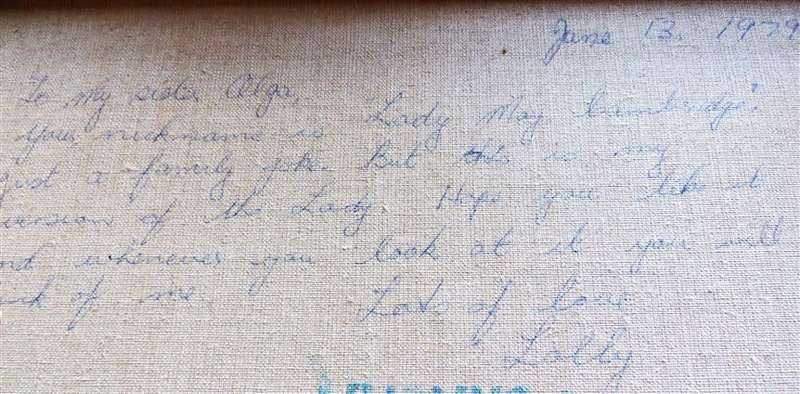 June 13. 1979
To my sister Olga,
Your nickname is "Lady May Cambridge".
just a family joke. But this is my
version of the Lady. Hope you like it
and whenever you look at it you will
think of me.
Lots of love
Lolly